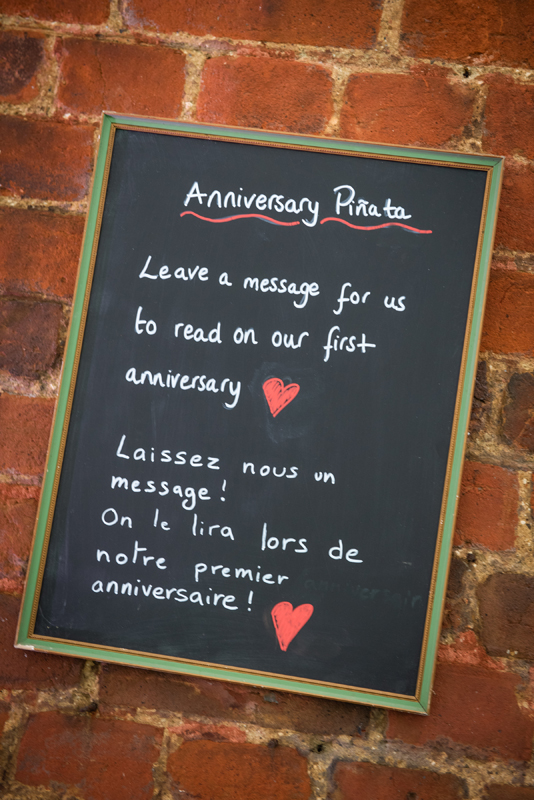 Anniversary Piñata
Leave a message for us
to read on our first
anniversary
Laissez nous un
message!
On le lira lors de
notre premier
anniversaire!